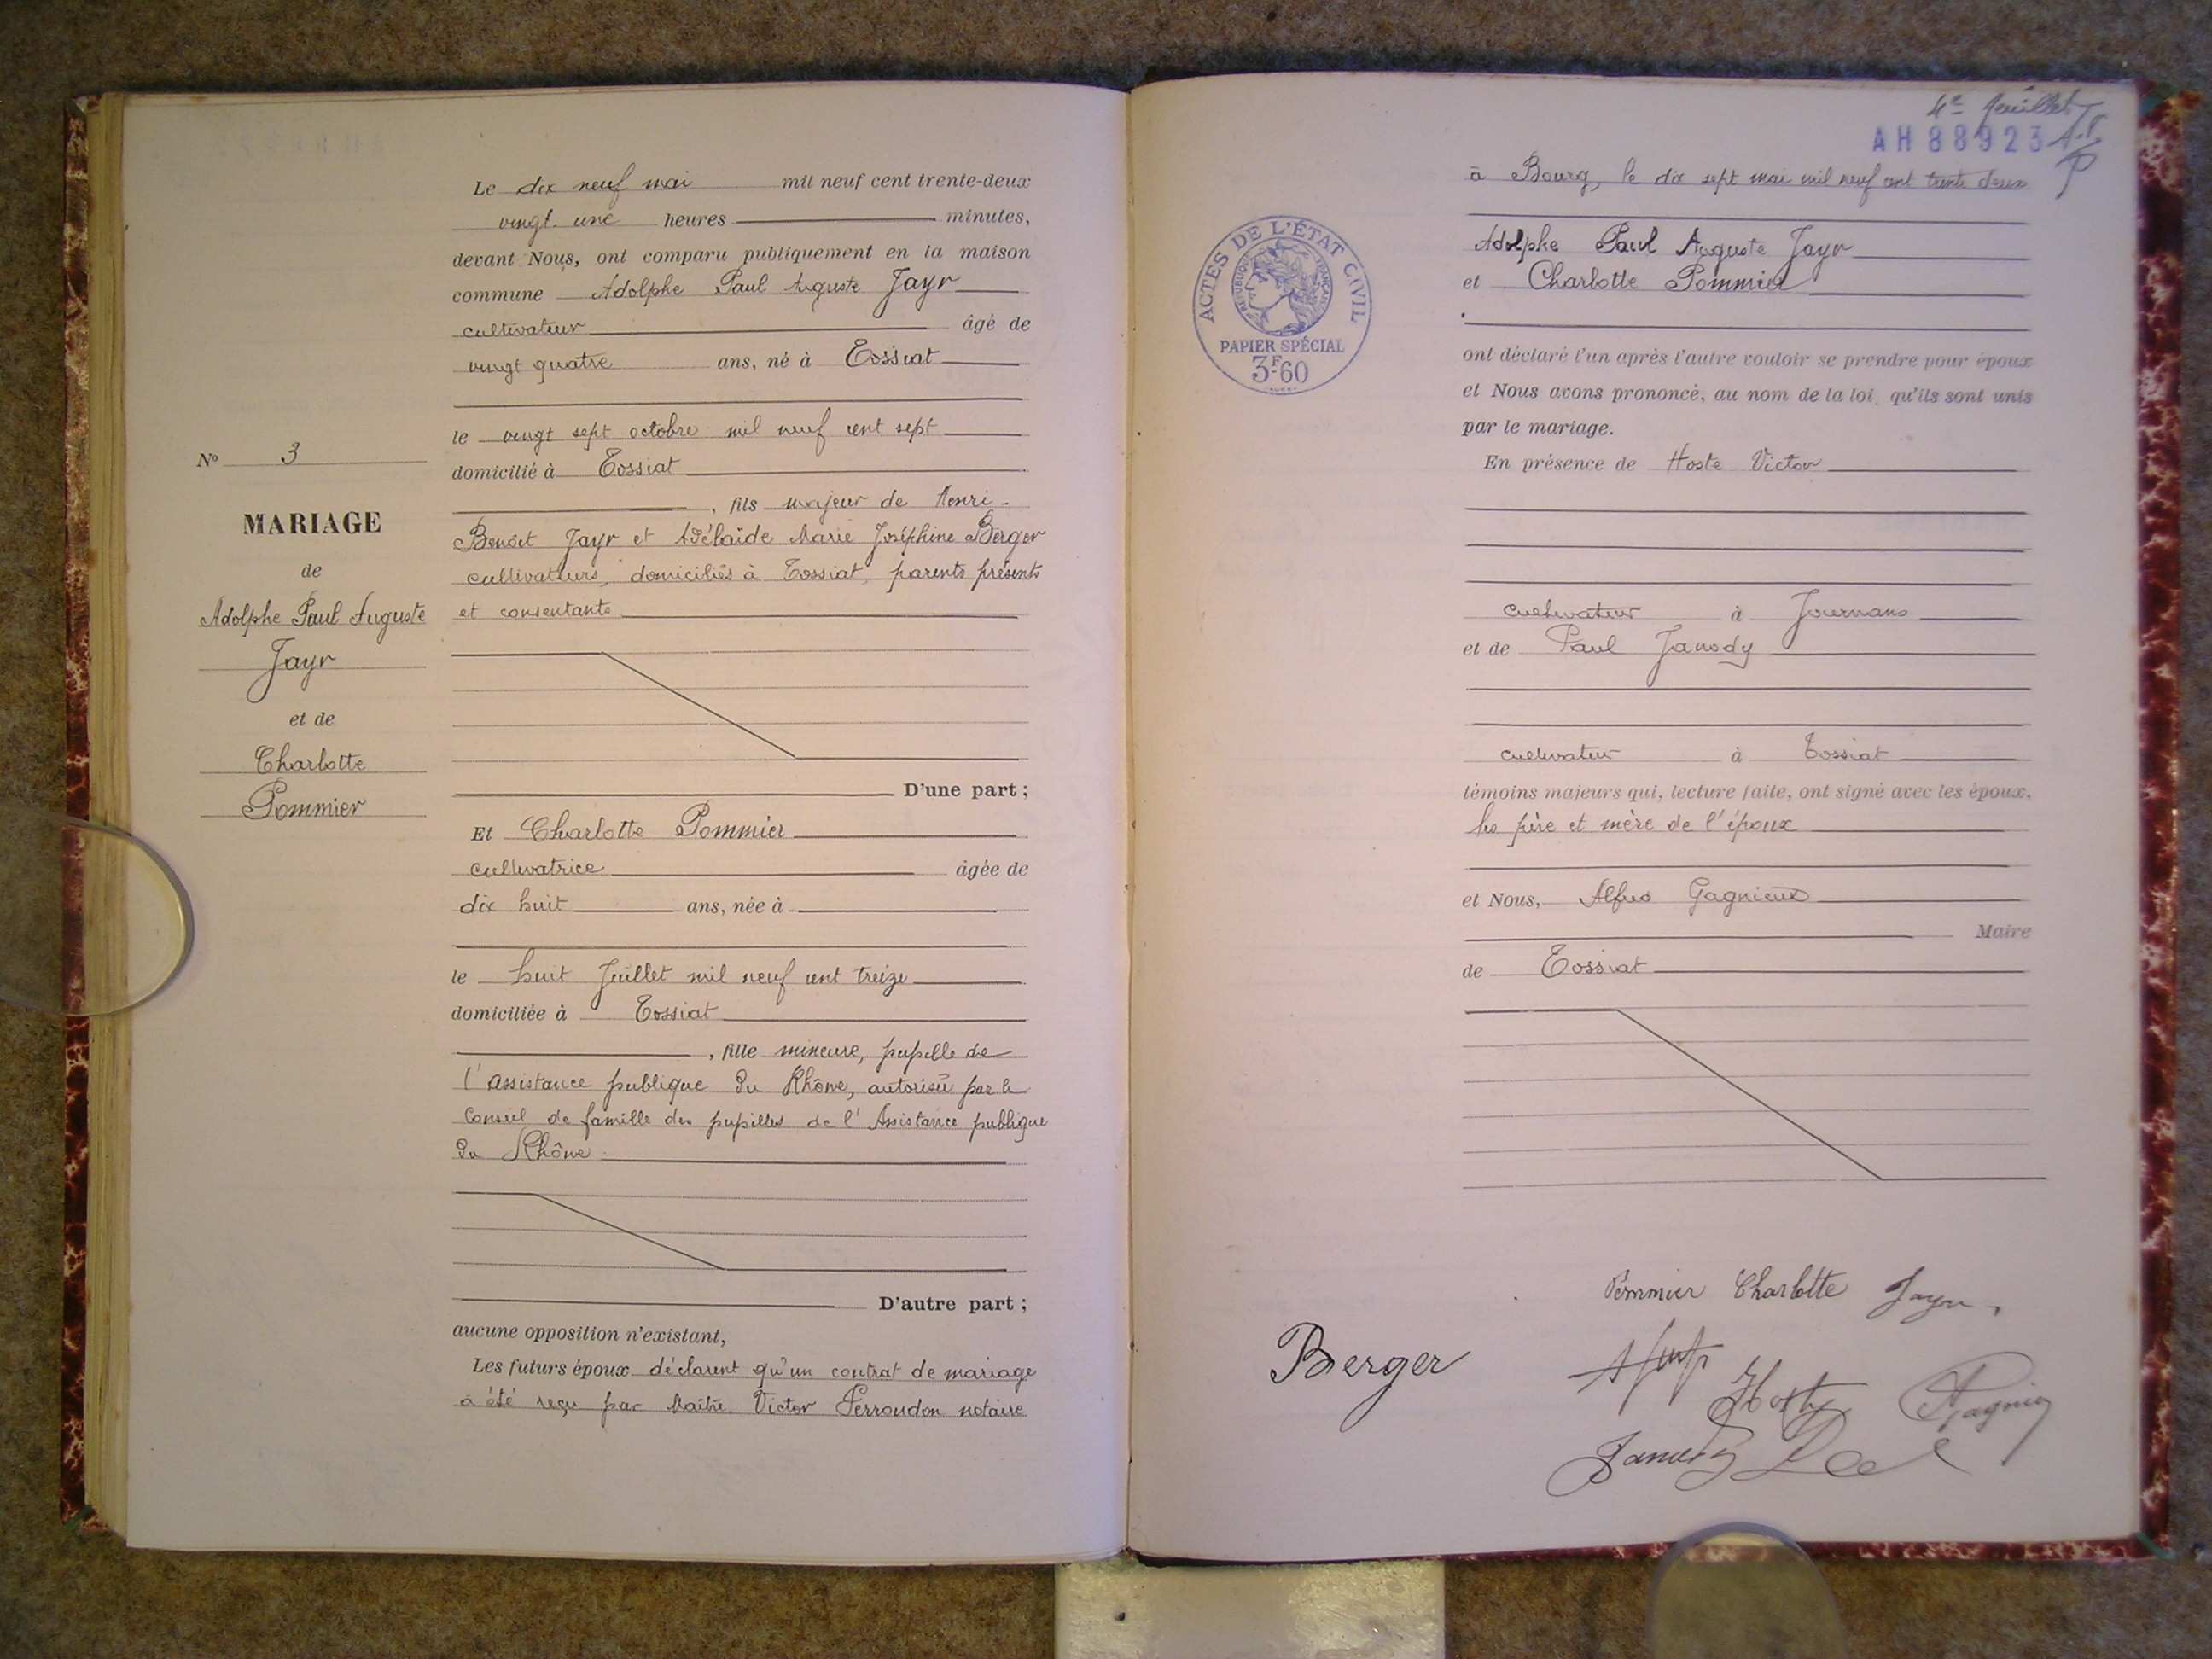 Le dix neuf mai mil neuf cent trente-deux
vingt une heures minutes,
devant Nous, ont comparu publiquement en la maison
commune Adolphe Paul Auguste Jayr
cultivateur âgé de
vingt quatre ans, né à Tossiat
le vingt sept octobre mil neuf cent sept
domicilié à Tossiat
, fils majeur de Henri
Benoît Jayr et Adélaïde Marie Joséphine Berger
cultivateurs, domiciliés à Tossiat, parents présents
et consentants
D'une part ;
Et Charlotte Pommier
cultivatrice âgée de
dix huit ans, née à
le huit Juillet mil neuf cent treize
domiciliée à Tossiat
, fille mineure, pupille de
l'assistance publique du Rhône, autorisée par le
Conseil de famille des pupilles de l'Assistance publique
du Rhône.
D'autre part ;
aucune opposition n'existant,
Les futurs époux déclarent qu'un contrat de mariage
a été reçu par Maître Victor Perroudon notaire
No 3
MARIAGE
de
Adolphe Paul Auguste
Jayr
et de
Charlotte
Pommier
4e feuillet
AH 88923
à Bourg, le dix sept mai mil neuf cent trente deux
Adolphe Paul Auguste Jayr
et Charlotte Pommier
ont déclaré l'un après l'autre vouloir se prendre pour époux
et Nous avons prononcé, au nom de la loi, qu'ils sont unis
par le mariage.
En présence de Hoste Victor
cultivateur à Journans
et de Paul Janody
cultivateur à Tossiat
témoins majeurs qui, lecture faite, ont signé avec les époux,
les père et mère de l'époux
et Nous, Alfred Gagnieux
Maire
de Tossiat
ACTES DE L'ÉTAT CIVIL
RÉPUBLIQUE FRANÇAISE
PAPIER SPÉCIAL
3F60
Pommier Charlotte Jayr
Berger
Hoste
Gagnieux
Janody